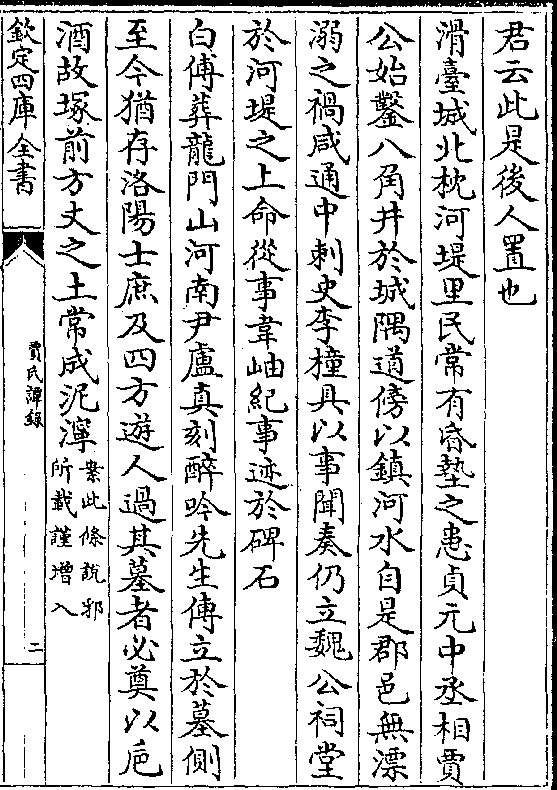 君云此是後人置也
滑臺城北枕河堤里民常有昏墊之患貞元中丞相賈
公始鑿八角井於城隅道傍以鎮河水自是郡邑無漂
溺之禍咸通中刺史李橦具以事聞奏仍立魏公祠堂
於河堤之上命從事韋岫紀事迹於碑石
白傅葬龍門山河南尹盧真刻醉吟先生傳立於墓側
至今猶存洛陽士庶及四方遊人過其墓者必奠以巵
酒故塚前方丈之土常成泥濘案此條說郛
所載謹增入
欽定四庫全書
賈氏譚錄
二